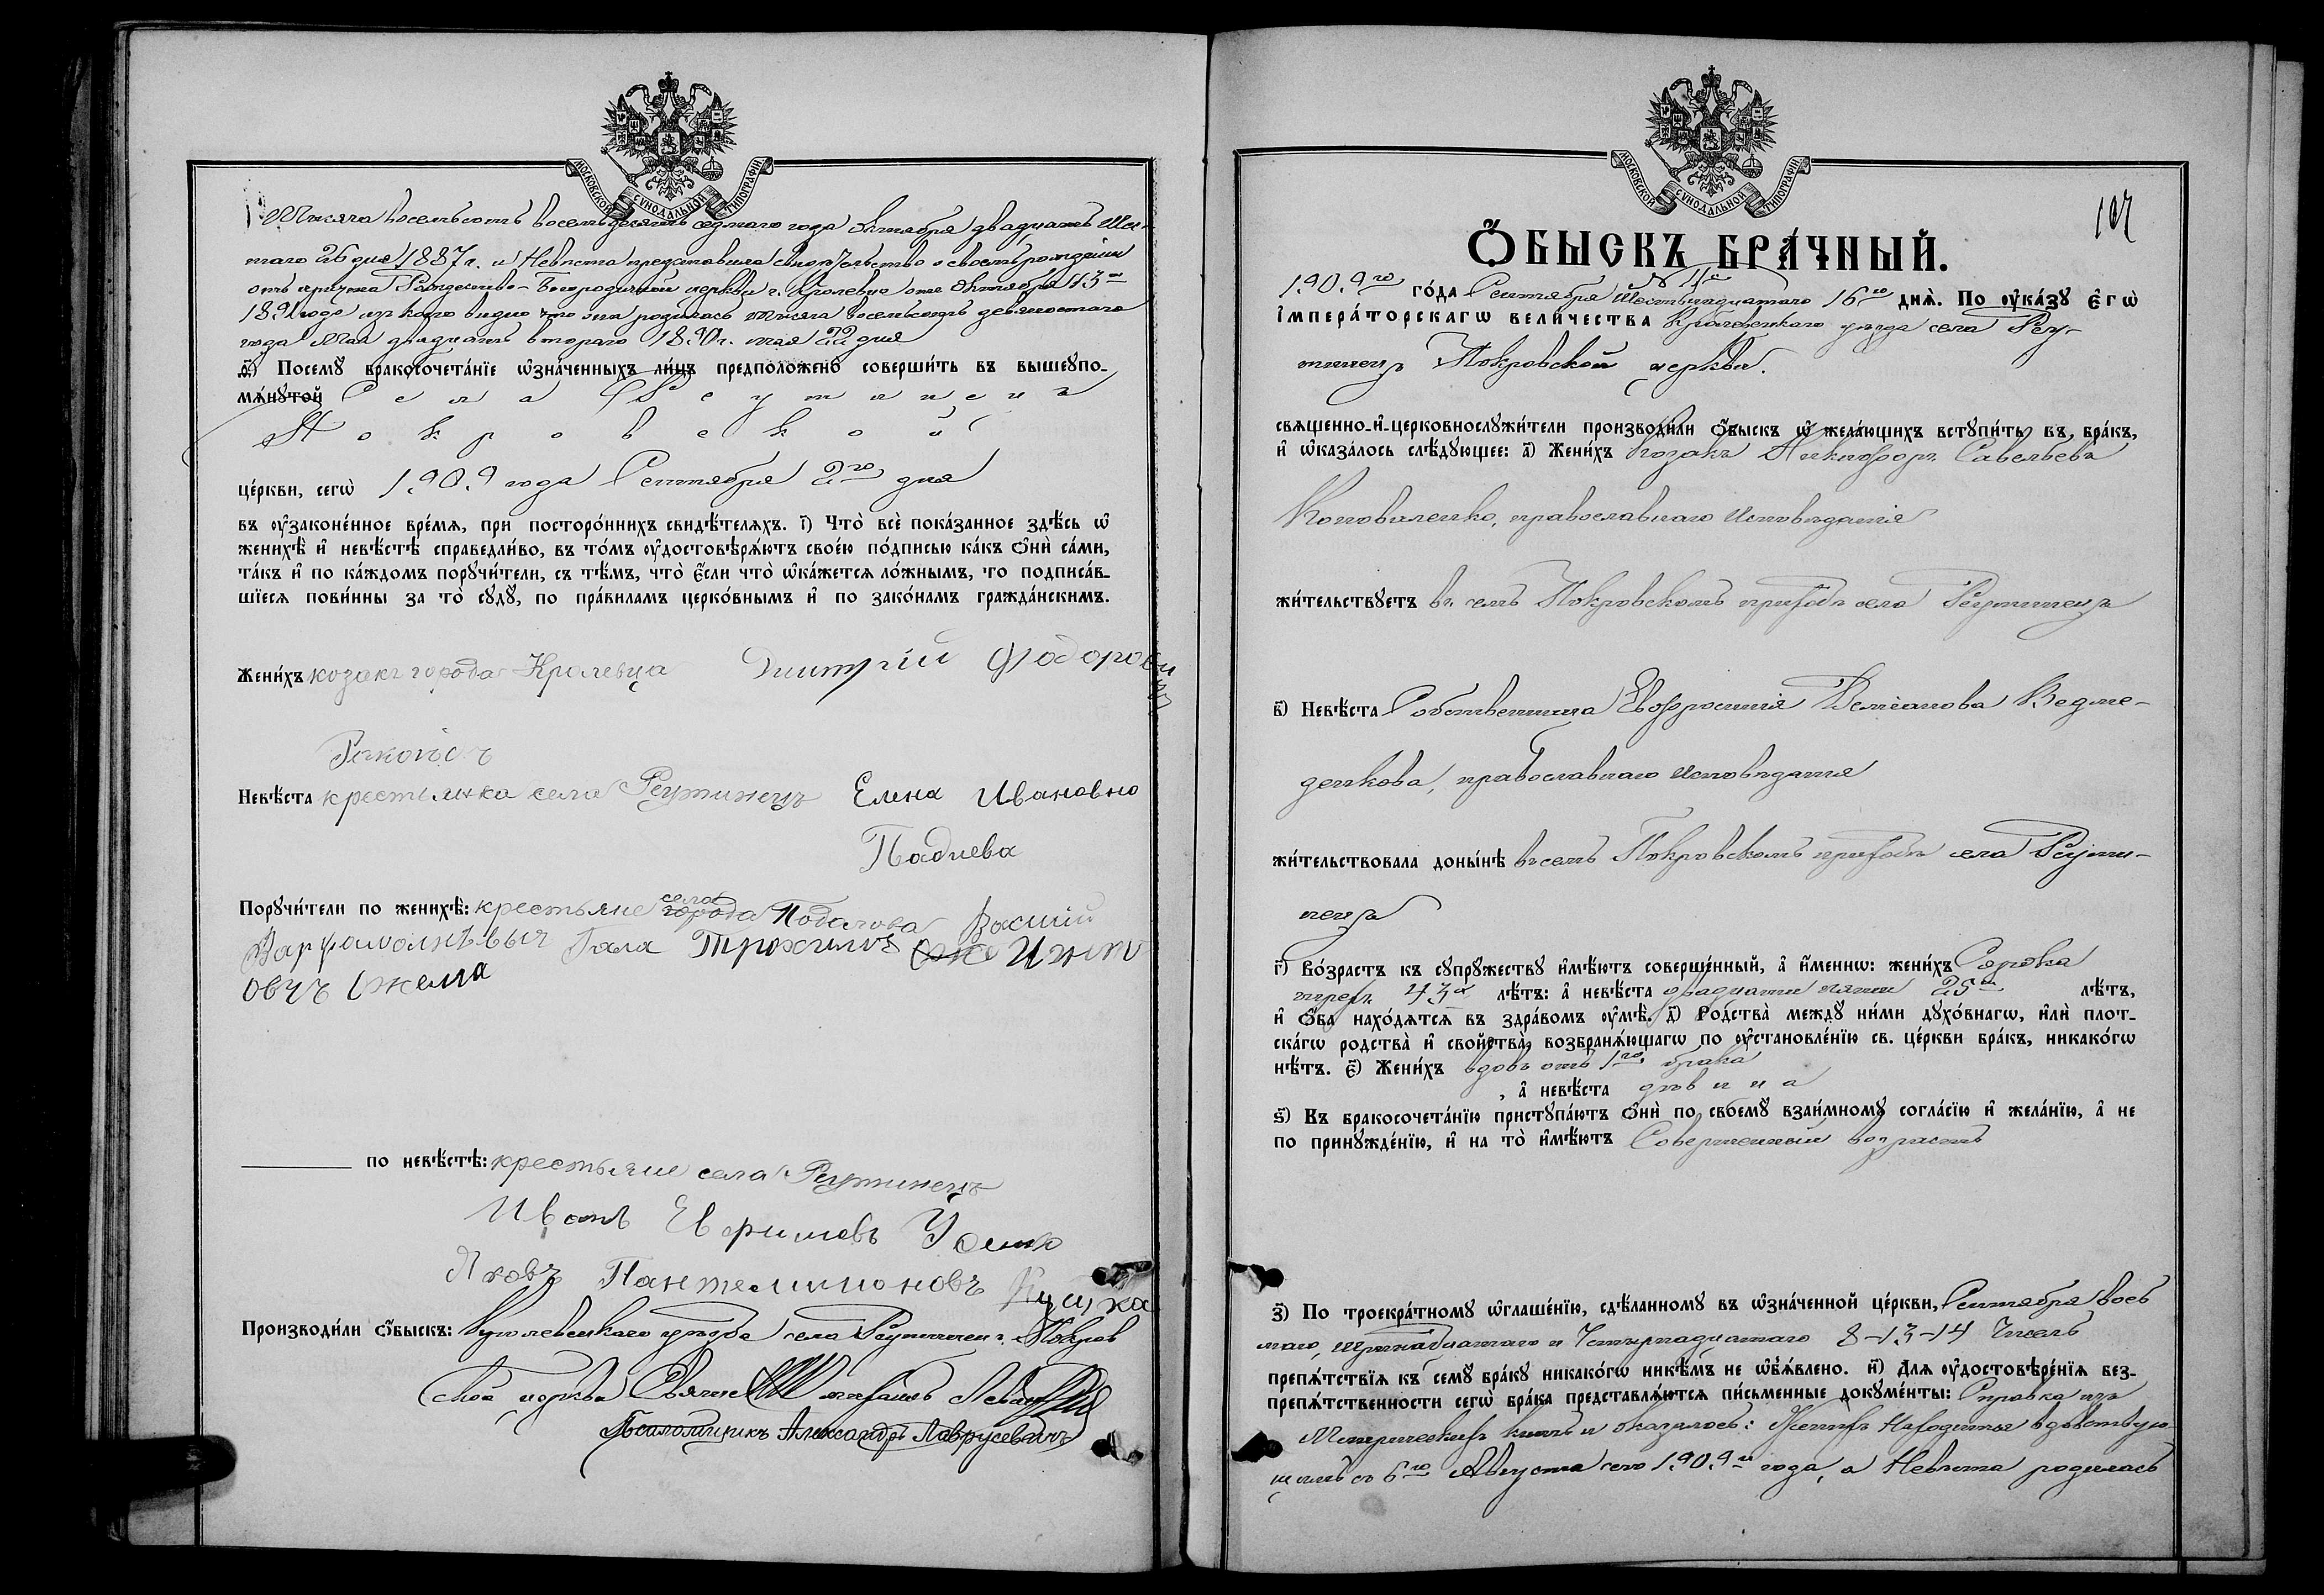 МОСКОВСКОЙ СУНОДАЛЬНОЙ ТИПОГРАФІИ
Тысяча восемьсотъ восемьдесятъ седмаго года Октября двадцать шес-
таго 26 дня 1887 г. и Невѣста представила свидѣтельство о своемъ рожденіи
отъ причта Рождество-Богородичной церкви г. Кролевца отъ Октября
года изъ коего видно что она родилась тысяча восемьсотъ девяностаго
года Мая двадцать втораго 1890 г. мая 22 дня
ѳ҃) Посемꙋ̀ бракосочета́нїе ѡ҆зна́ченныхъ ли́цъ предположено̀ соверши́ть въ вышеꙋпо-
мѧ́нꙋтой Села Реутинецъ
Покровской
це́ркви, сегѡ̀ 1909 года Сентября 2го дня
въ ᲂу҆зако́ненное вре́мѧ, при посторо́ннихъ свидѣ́телѧхъ. і҃) Что̀ всѐ пока́занное здѣ́сь ѡ҆
женихѣ̀ и҆ невѣ́стѣ справедли́во, въ то́мъ ᲂу҆достовѣрѧ́ютъ свое́ю по́дписью ка́къ ѻ҆нѝ са́ми,
та́къ и҆ по ка́ждомъ порꙋчи́тели, съ тѣ́мъ, что̀ є҆́сли что̀ ѡ҆ка́жетсѧ ло́жнымъ, то подписа́в-
шїесѧ пови́нны за то̀ сꙋдꙋ̀, по пра́виламъ церко́внымъ и҆ по зако́намъ гражда́нскимъ.
Жени́хъ козакъ города Кролевца Дмитрій Федорови
Невѣ́ста крестьянка села Реутинецъ Елена Ивановно
Падиева
Порꙋчи́тели по женихѣ̀: крестьяне села города Подолова Василій
Варфоломѣевич
по невѣ́стѣ: крестьяне села Реутинецъ
Иванъ Ефимовъ Усик
Яковъ Пантелимоновъ
Производи́ли ѻ҆́быскъ: Кролевецкаго уѣзда села Реутинецъ Покров
ской церкви Священникъ Михаилъ
Псаломщикъ Александръ Лаврусевичъ
МОСКОВСКОЙ СУНОДАЛЬНОЙ ТИПОГРАФІИ
107
Ѻ҆́БЫСКЪ БРА́ЧНЫЙ.
№ 11й
1909го го́да Сентября Шестьнадцатаго 16го днѧ̀. По ᲂу҆ка́зꙋ є҆гѡ̀
і҆мпера́торскагѡ вели́чества Кролевецкаго уѣзда села Реу-
тинецъ Покровской церкви.
свѧще́нно-и҆-церковнослꙋжи́тели производи́ли ѻ҆́быскъ ѡ҆ жела́ющихъ встꙋпи́ть въ бра́къ,
и҆ ѡ҆каза́лось слѣ́дꙋющее: а҃) Жени́хъ Козакъ Никифоръ Савельевъ
Коноваленко, православнаго исповѣданія
жи́тельствꙋетъ въ семъ Покровскомъ приходѣ села Реутинецъ
в҃) Невѣ́ста Собственница Евфросинія Демianова Ведме-
денкова, православнаго исповѣданія
жи́тельствовала доны́нѣ въ семъ Покровскомъ приходѣ села Реути-
нецъ
г҃) Во́зрастъ къ сꙋпрꙋ́жествꙋ и҆мѣ́ютъ соверше́нный, а҆ и҆́меннѡ: жени́хъ Сорока
трехъ 43х лѣ́тъ: а҆ невѣ́ста двадцати пяти 25ти лѣ́тъ,
и҆ ѻ҆́ба нахо́дѧтсѧ въ здра́вомъ ᲂу҆мѣ̀. д҃) Родства̀ междꙋ ни́ми дꙋхо́внагѡ, и҆лѝ плот-
ска́гѡ родства̀ и҆ свойства̀, возбранѧ́ющагѡ по ᲂу҆становле́нїю св. це́ркви бра́къ, никако́гѡ
нѣ́тъ. є҃) Жени́хъ вдовъ отъ 1го брака
, а҆ невѣ́ста дѣвица
ѕ҃) Къ бракосочета́нїю пристꙋпа́ютъ ѻ҆нѝ по своемꙋ̀ взаи́мномꙋ согла́сїю и҆ жела́нїю, а҆ не
по принꙋжде́нїю, и҆ на то̀ и҆мѣ́ютъ Совершенный возрастъ
з҃) По троекра́тномꙋ ѡ҆глаше́нїю, сдѣ́ланномꙋ въ ѡ҆зна́ченной це́ркви, Сентября вось
маго, тринадцатаго и Четырнадцатаго 8-13-14 Чиселъ
препѧ́тствїѧ къ семꙋ̀ бра́кꙋ никако́гѡ никѣ́мъ не ѡ҆б̾ѧ́влено. и҃) Длѧ ᲂу҆достовѣре́нїѧ без-
препѧ́тственности сегѡ̀ бра́ка представлѧ́ютсѧ пи́сьменные докꙋме́нты: Справка изъ
Метрическихъ книгъ и оказалось: Женихъ Находится вдовствую-
щимъ съ 6го Августа сего 1909го года, а Невѣста родилась